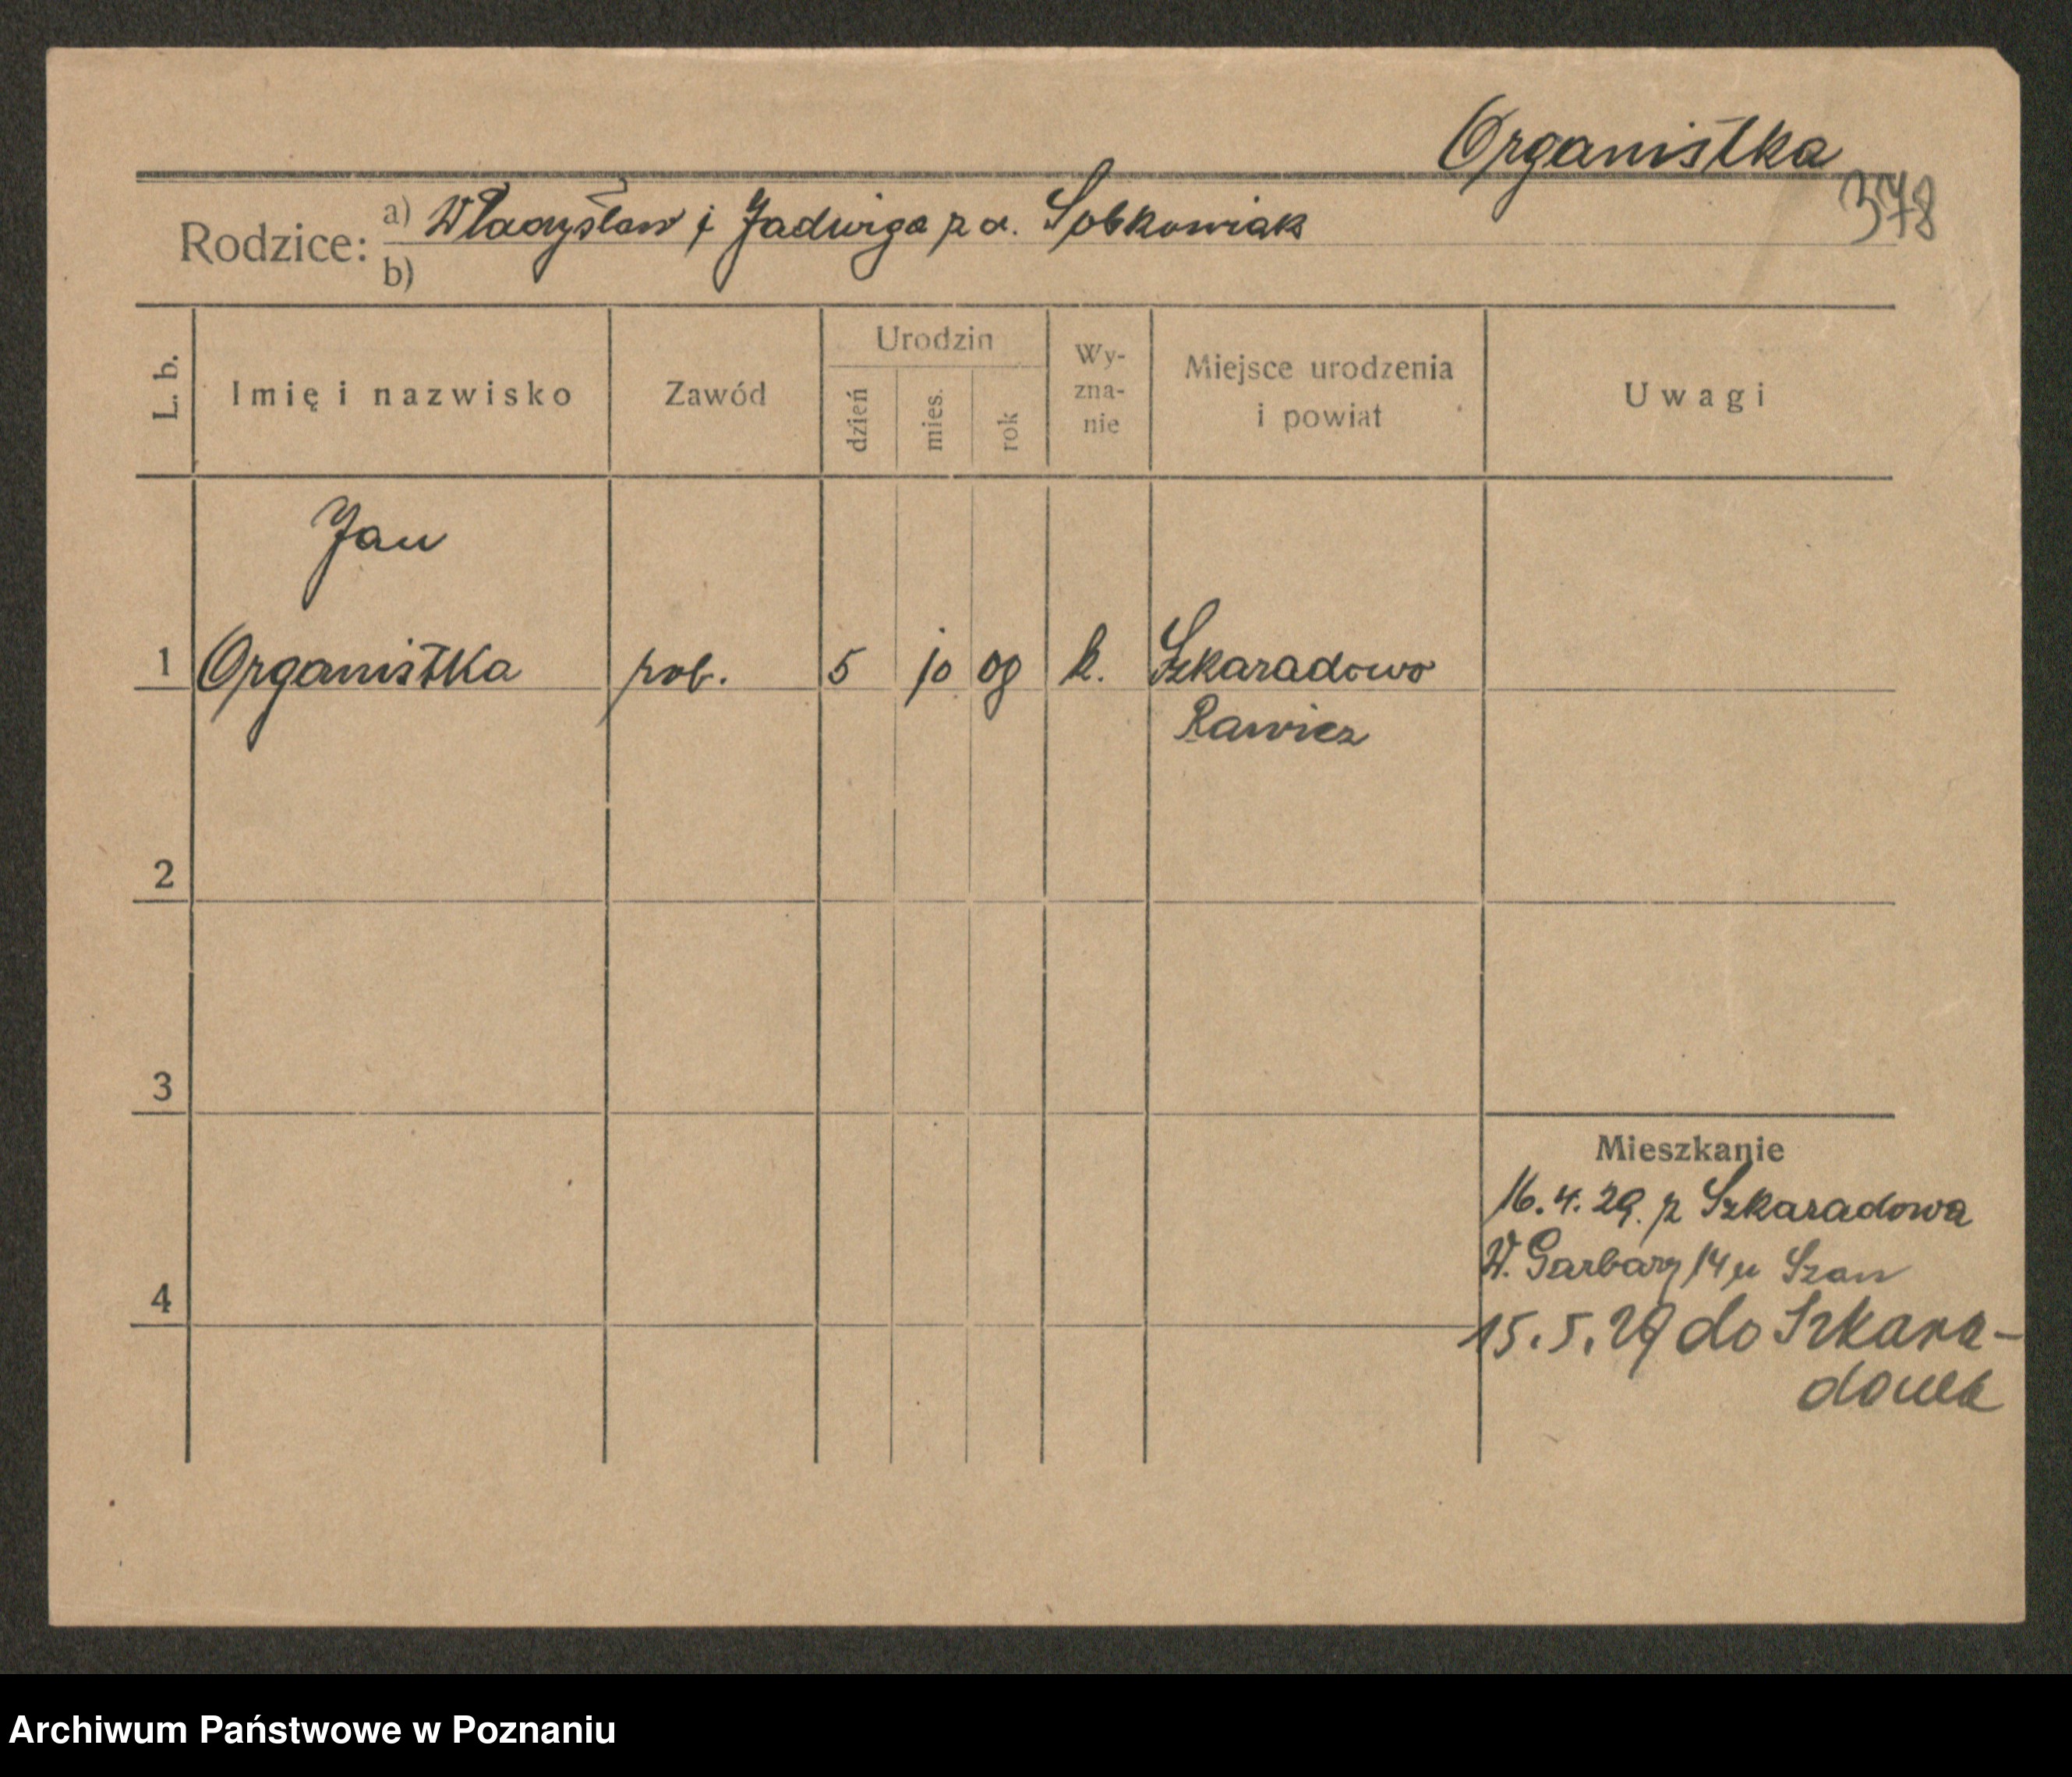 Organistka
378
Rodzice: a) Władysław i Jadwiga z d. Sobkowiak
b)
L. b.
Imię i nazwisko
Zawód
Urodzin
dzień
mies.
rok
Wy-
zna-
nie
Miejsce urodzenia
i powiat
Uwagi
Jan
1 Organistka rob. 5 10 09 k. Szkaradowo
Rawicz
2
3
Mieszkanie
16.4.29. z Szkaradowa
W. Garbary 14 u
4
15.5.29 do Szkara-
dowa
Archiwum Państwowe w Poznaniu